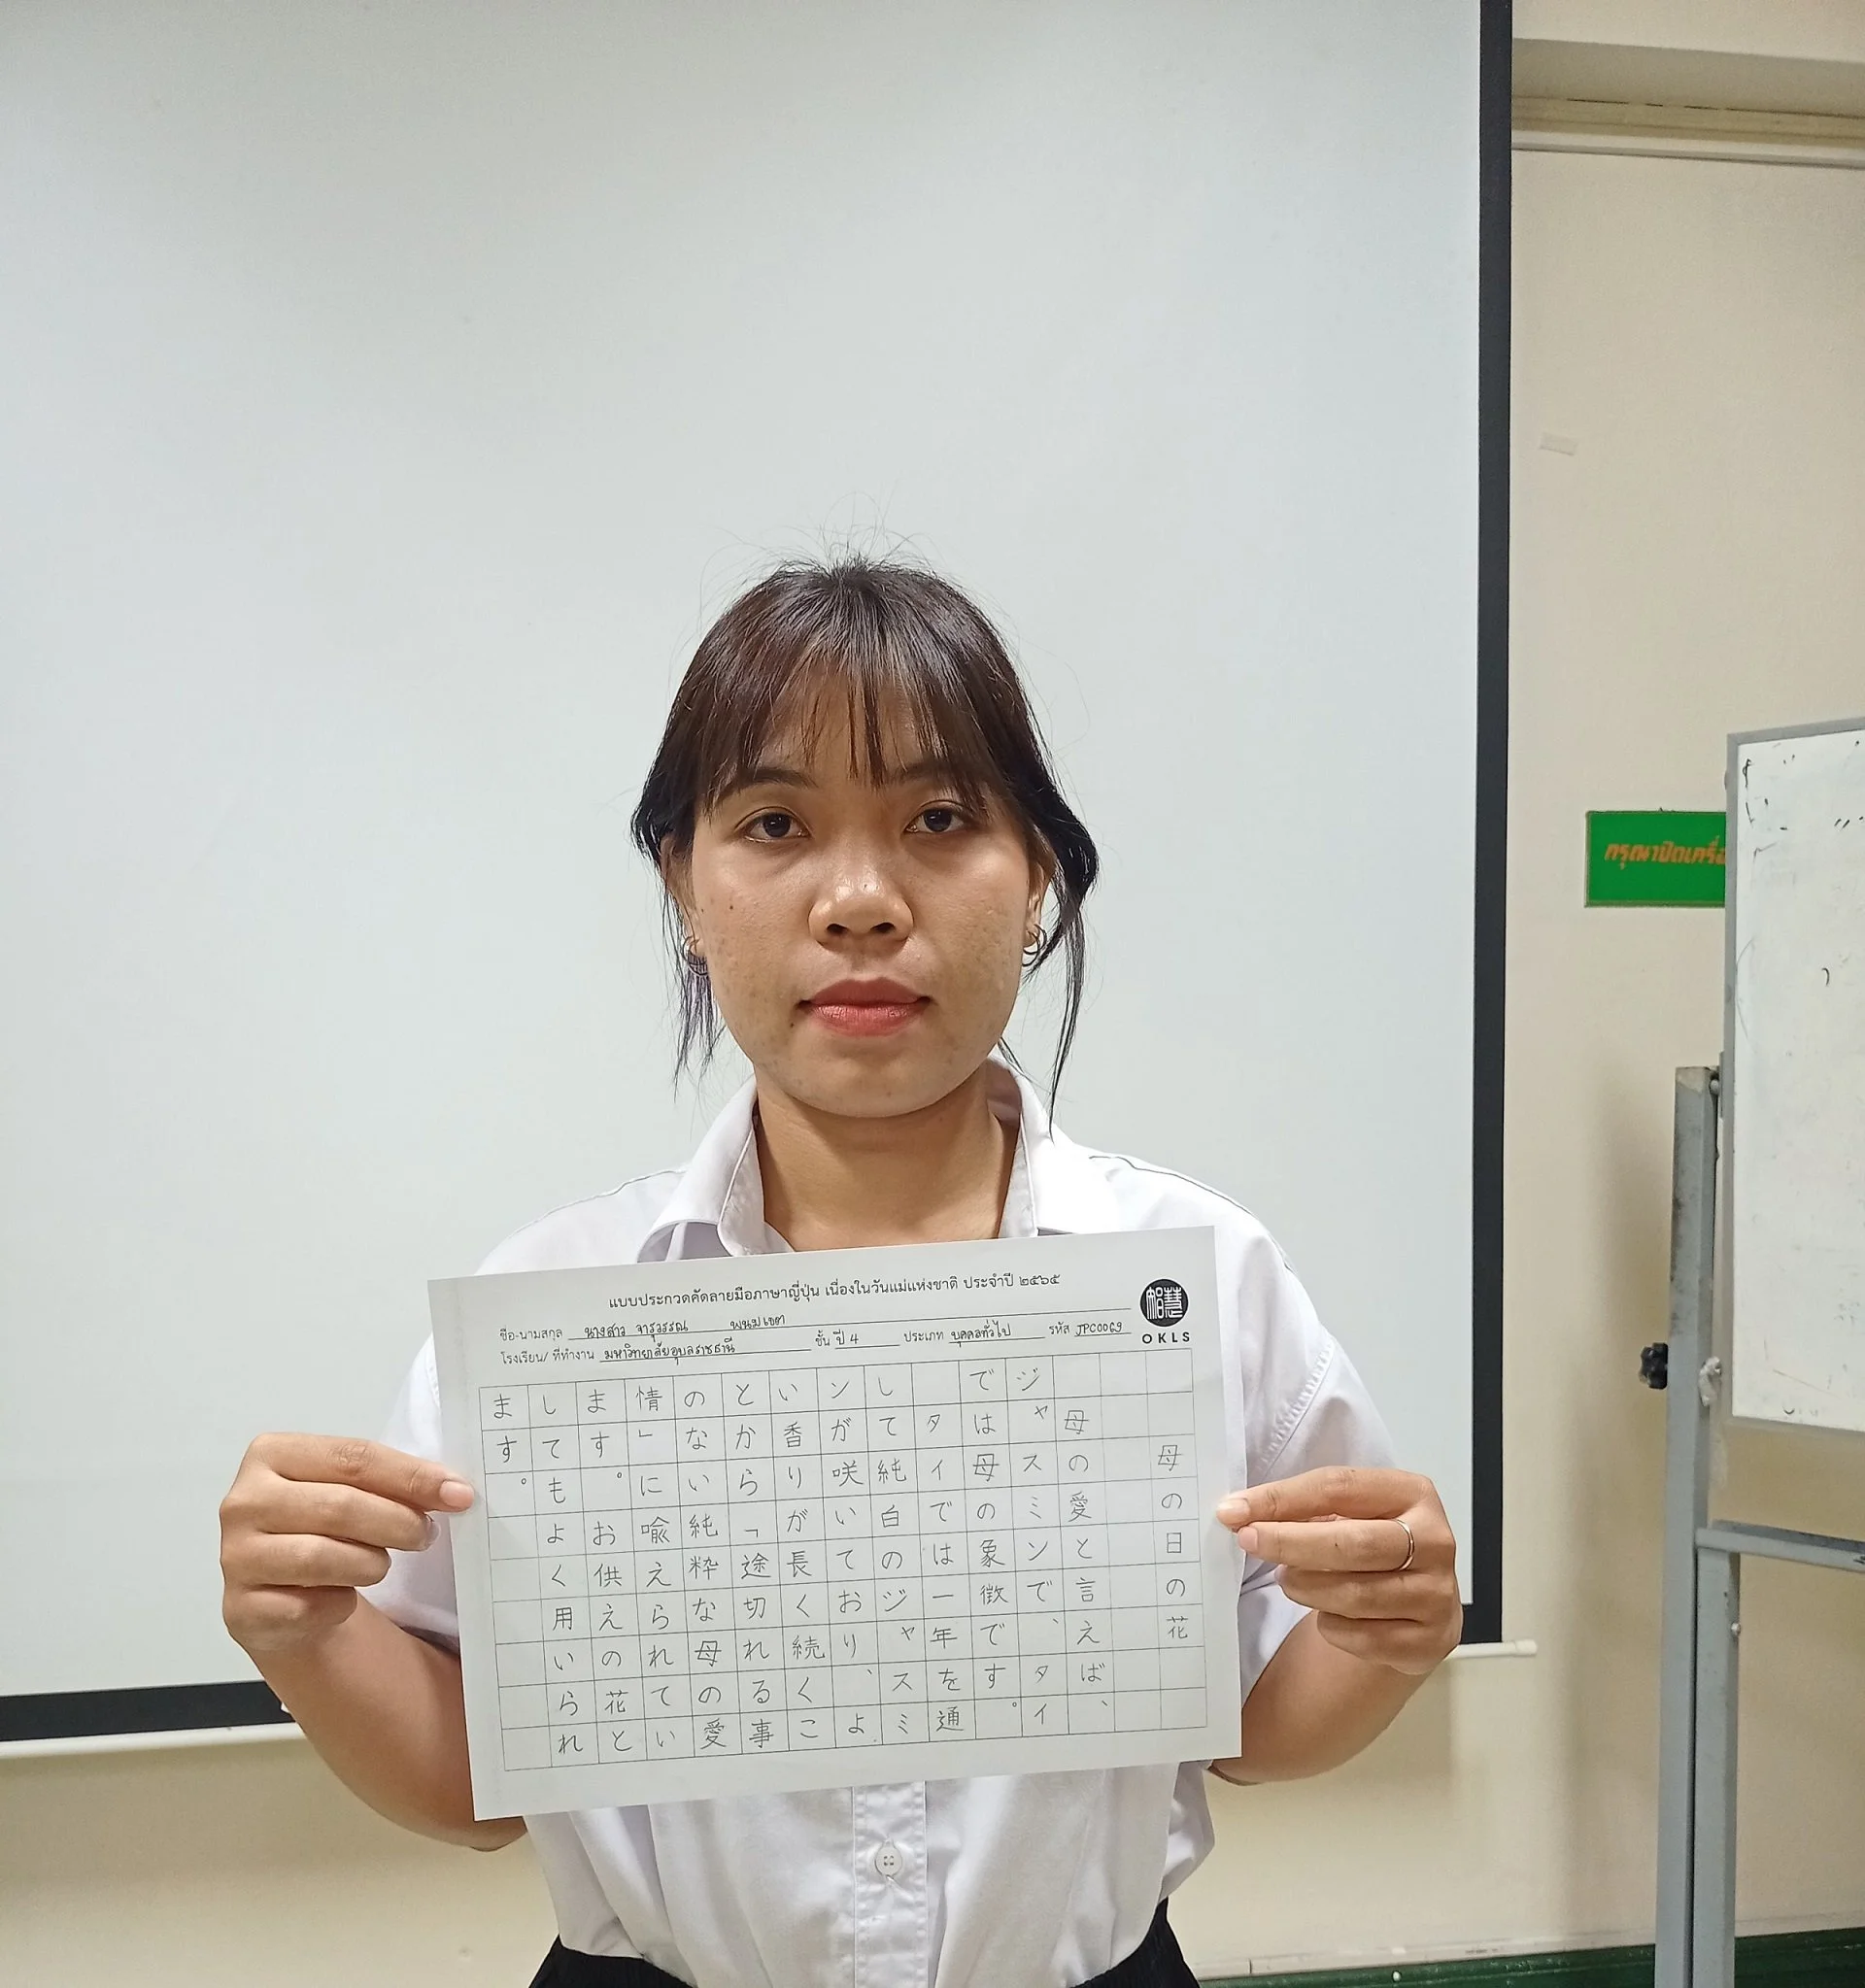 แบบประกวดคัดลายมือภาษาญี่ปุ่น เนื่องในวันแม่แห่งชาติ ประจำปี ๒๕๖๕
ชื่อ-นามสกุล นางสาว จารุวรรณ พนมเขต
โรงเรียน/ ที่ทำงาน มหาวิทยาลัยอุบลราชธานี ชั้น ปี 4 ประเภท บุคคลทั่วไป รหัส JPC0069
智慧
OKLS
母の日の花
母の愛と言えば、
ジャスミンで、タイ
では母の象徴です。
タイでは一年を通
して純白のジャスミ
ンが咲いており、よ
い香りが長く続くこ
とから「途切れる事
のない純粋な母の愛
情」に喩えられてい
ます。お供えの花と
してもよく用いられ
ます。
กรุณาปิดเครื่อ